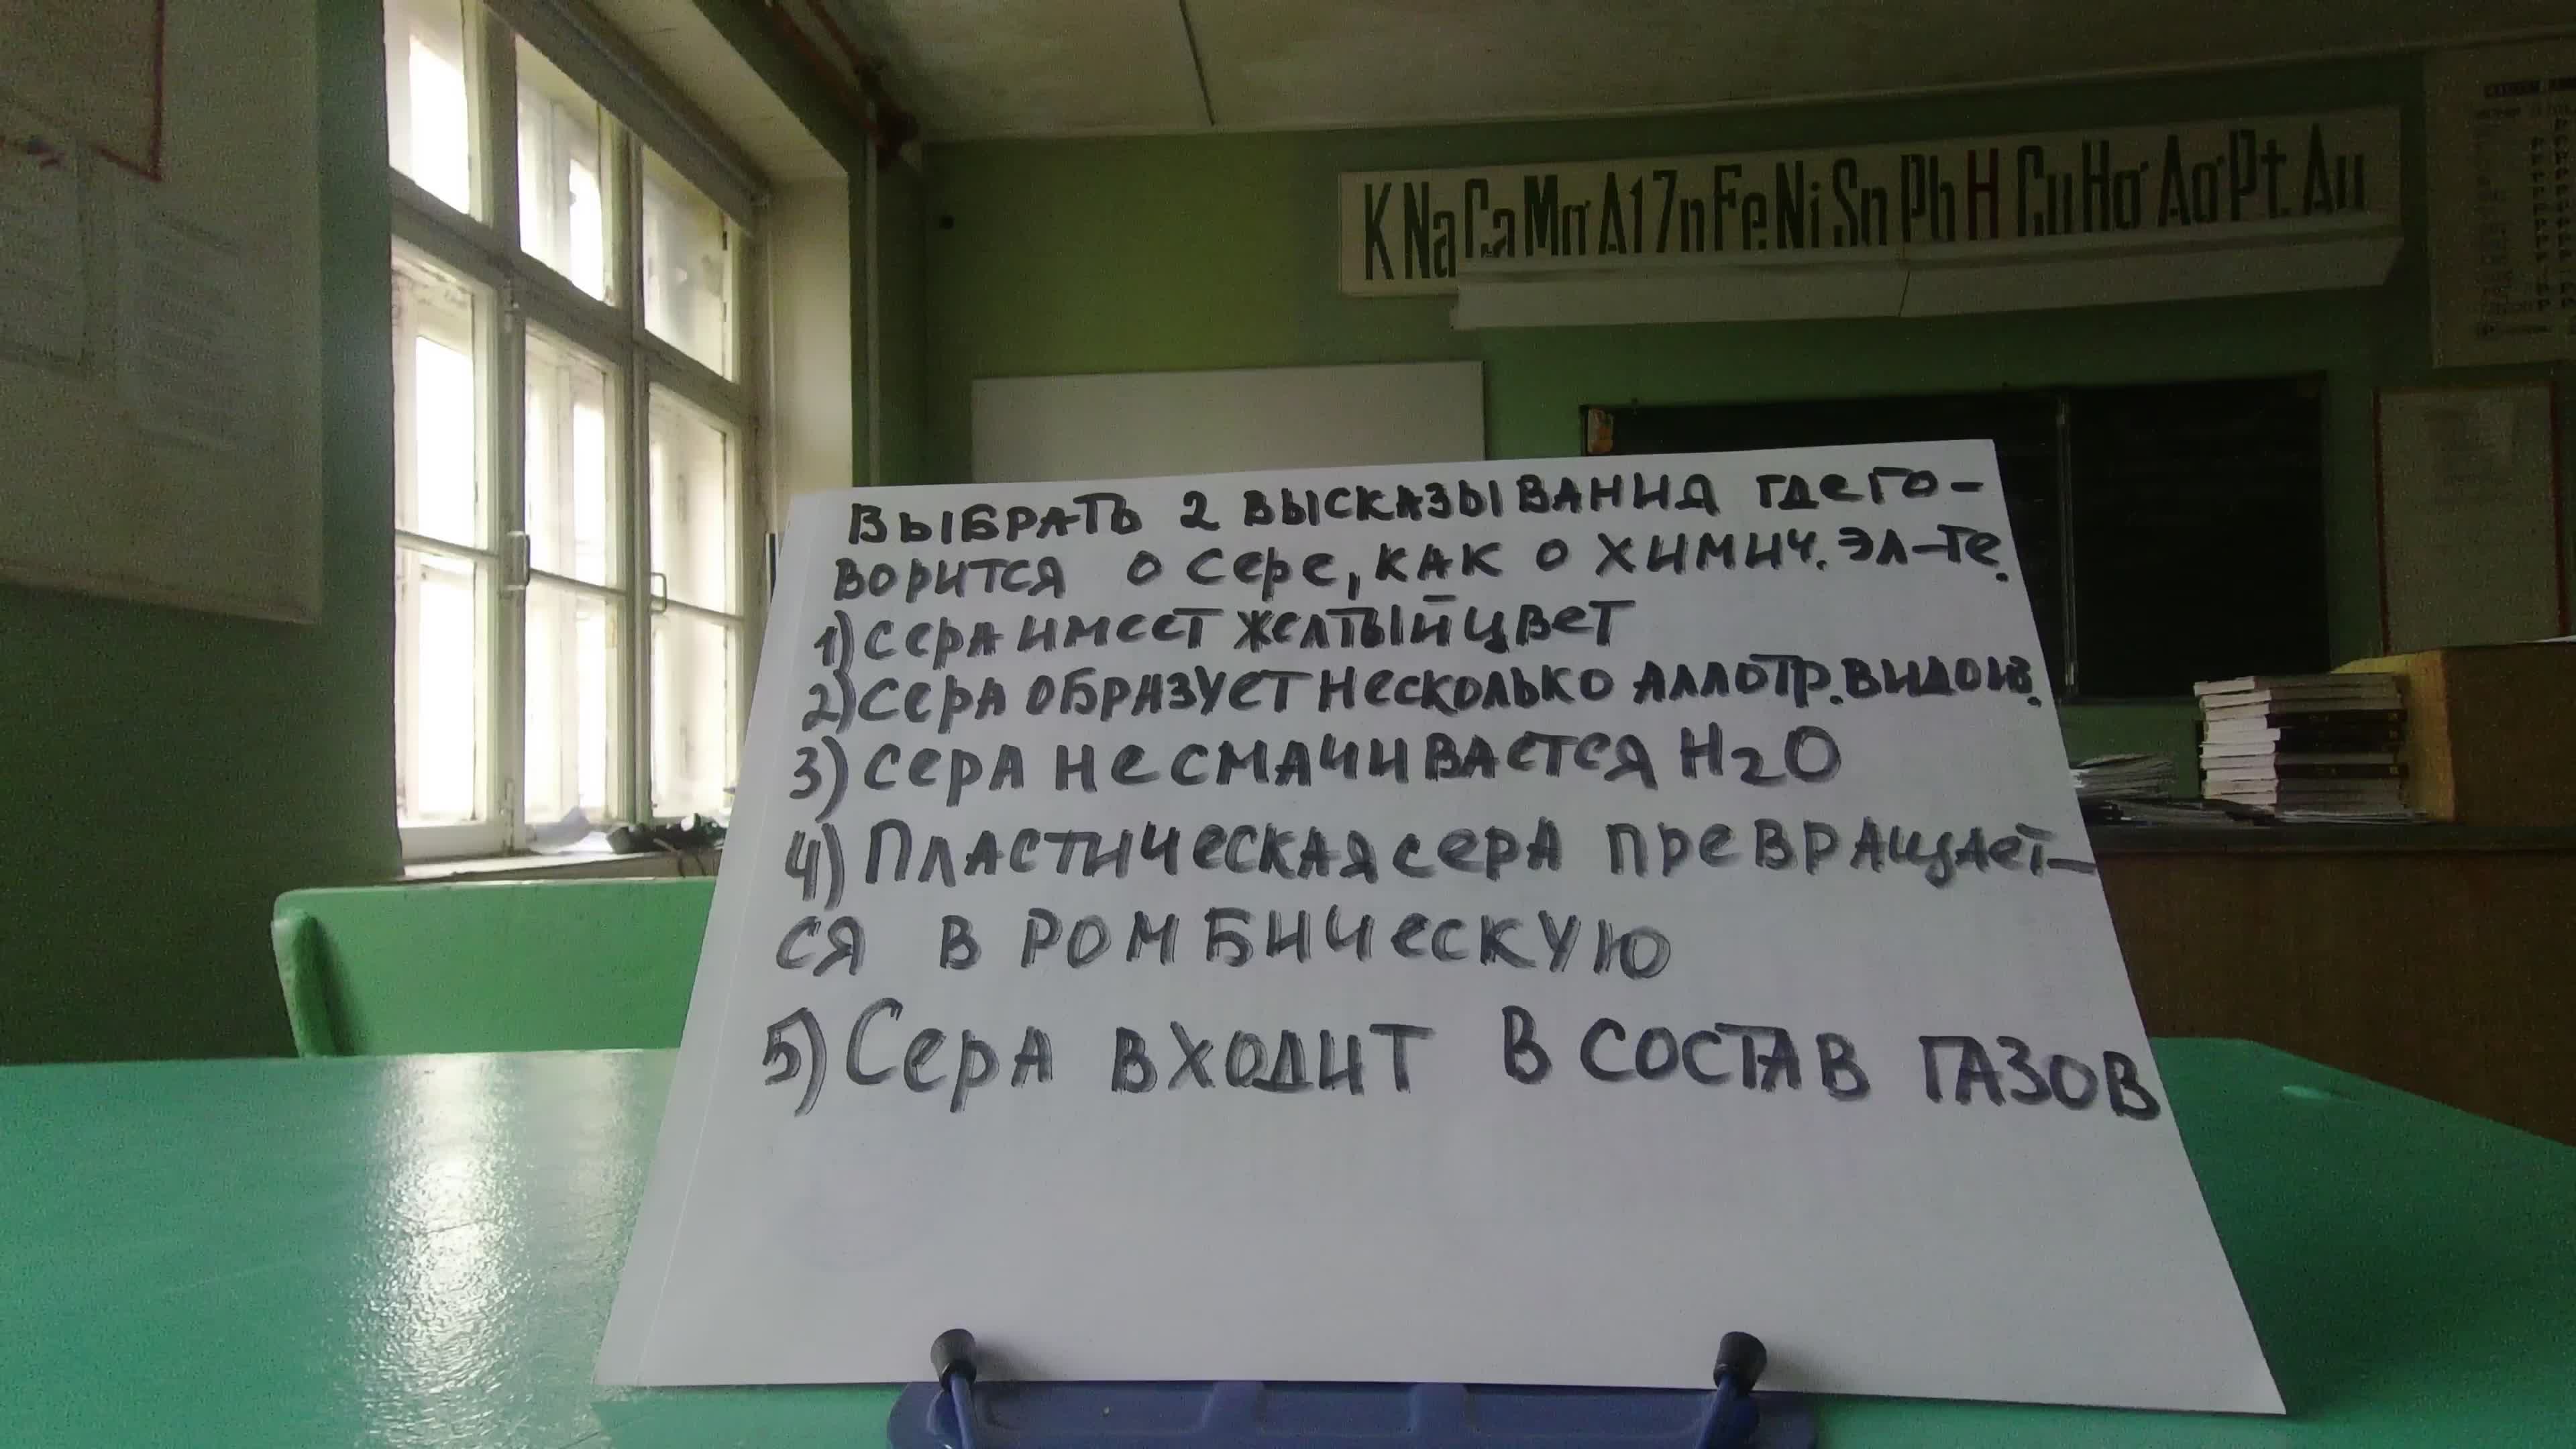 K Na Ca Mg Al Zn Fe Ni Sn Pb H Cu Hg Ag Pt Au
ВЫБРАТЬ 2 ВЫСКАЗЫВАНИЯ ГДЕ ГО-
ВОРИТСЯ О СЕРЕ, КАК О ХИМИЧ. ЭЛ-ТЕ.
1) СЕРА ИМЕЕТ ЖЕЛТЫЙ ЦВЕТ
2) СЕРА ОБРАЗУЕТ НЕСКОЛЬКО АЛЛОТР. ВИДОВ.
3) СЕРА НЕ СМАЧИВАЕТСЯ H2O
4) ПЛАСТИЧЕСКАЯ СЕРА ПРЕВРАЩАЕТ-
СЯ В РОМБИЧЕСКУЮ
5) СЕРА ВХОДИТ В СОСТАВ ГАЗОВ